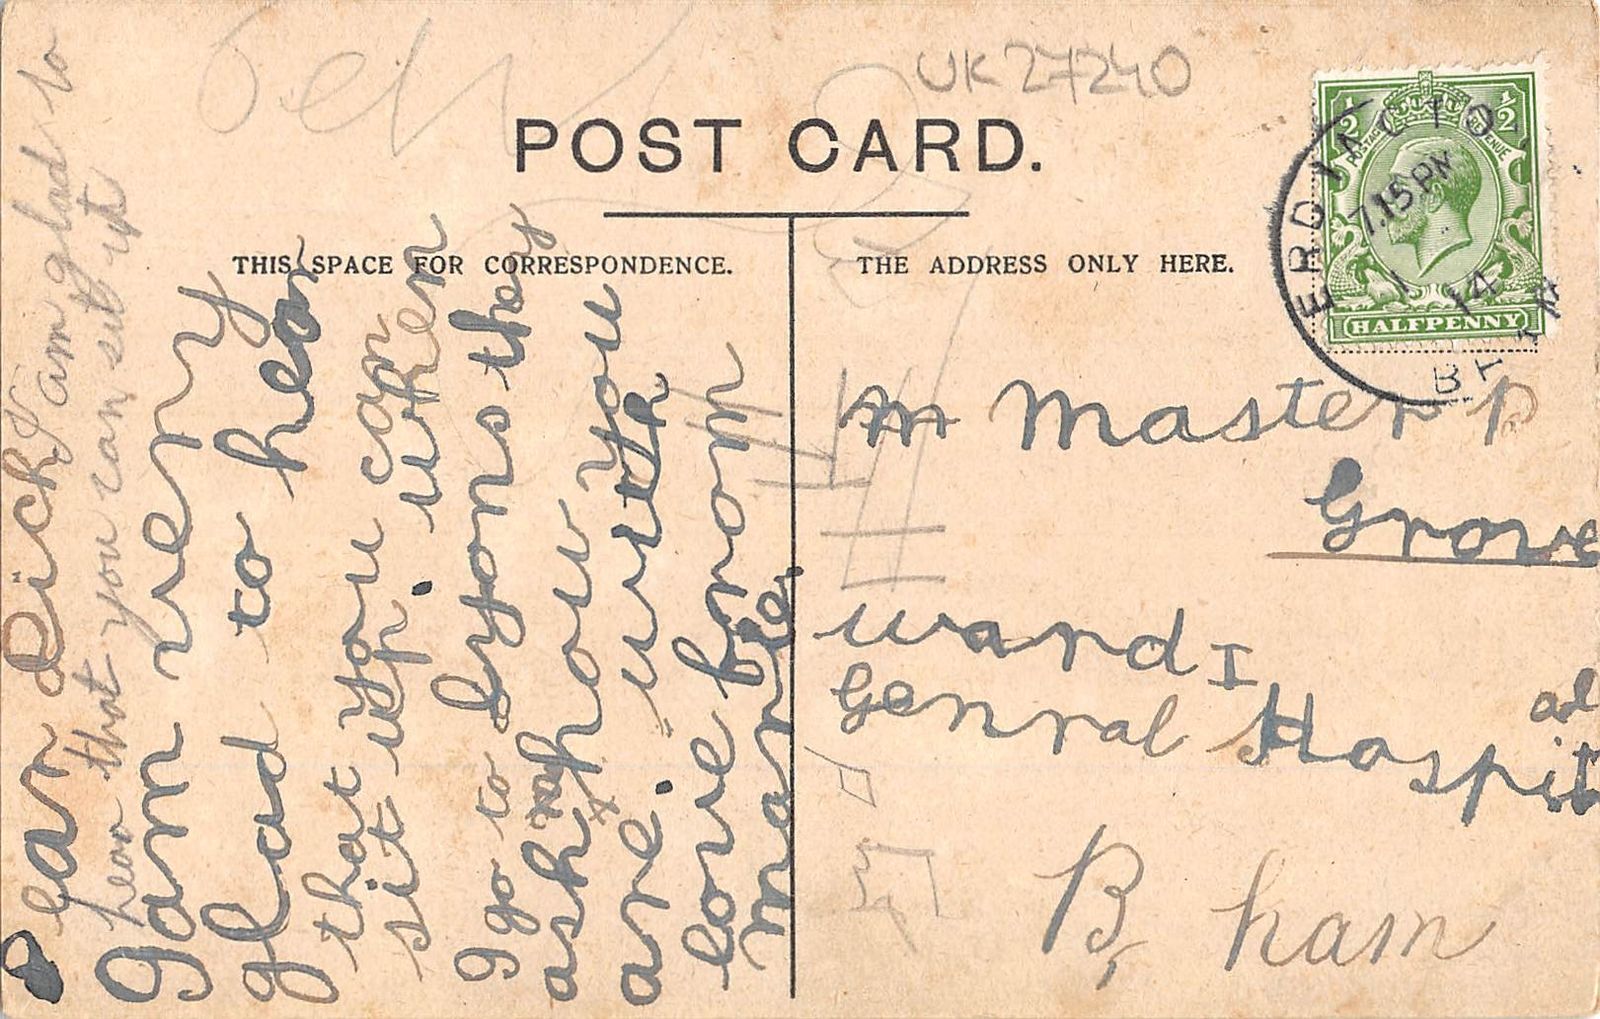 UK 27240
POST CARD.
THIS SPACE FOR CORRESPONDENCE.
THE ADDRESS ONLY HERE.
½ ½
POSTAGE REVENUE
HALFPENNY
ERDINGTO
7.15 PM
1 14
BHAM
Dear Dick I am glad to
hear that you can sit up
I am very
glad to hear
that you can
sit up. when
I go to Lyons they
ask how you
are. with
love from
Marie.
m Master P
Grove
ward I
Genral Hospital
B, ham